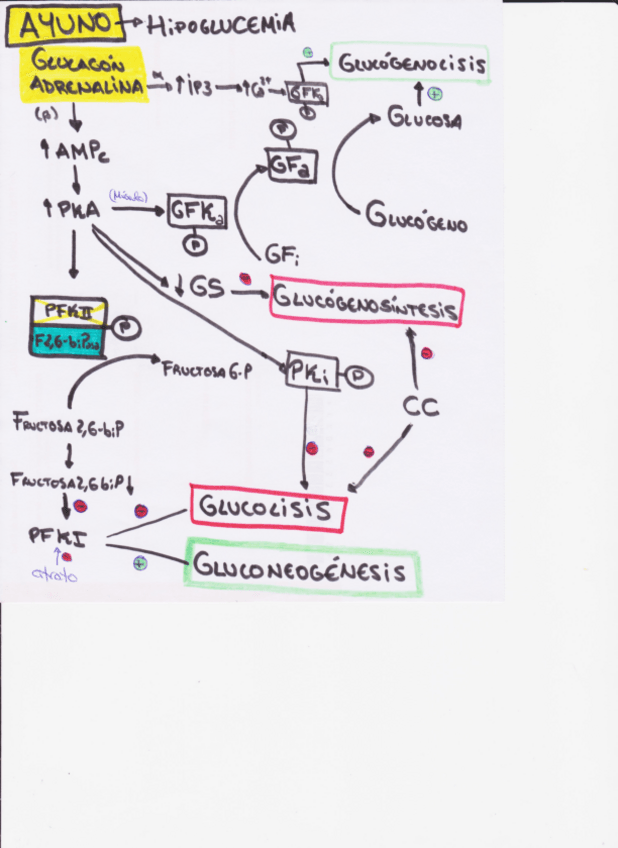 AYUNO → HIPOGLUCEMIA
GLUCAGÓN
ADRENALINA
α
↑IP3 → ↑Ca²⁺ → GFK
P
+
GLUCÓGENOLISIS
+
GLUCOSA
(β)
↑AMPc
P
GFa
↑PKA
(Músculo)
GFKa
P
GLUCÓGENO
GFi
↓GS
-
GLUCÓGENOSÍNTESIS
PFKII
F2,6-biPasa
P
FRUCTOSA 6-P
PKi
P
-
CC
FRUCTOSA 2,6-biP
-
-
FRUCTOSA 2,6 biP↓
-
-
GLUCOLISIS
PFKI
-
+
GLUCONEOGÉNESIS